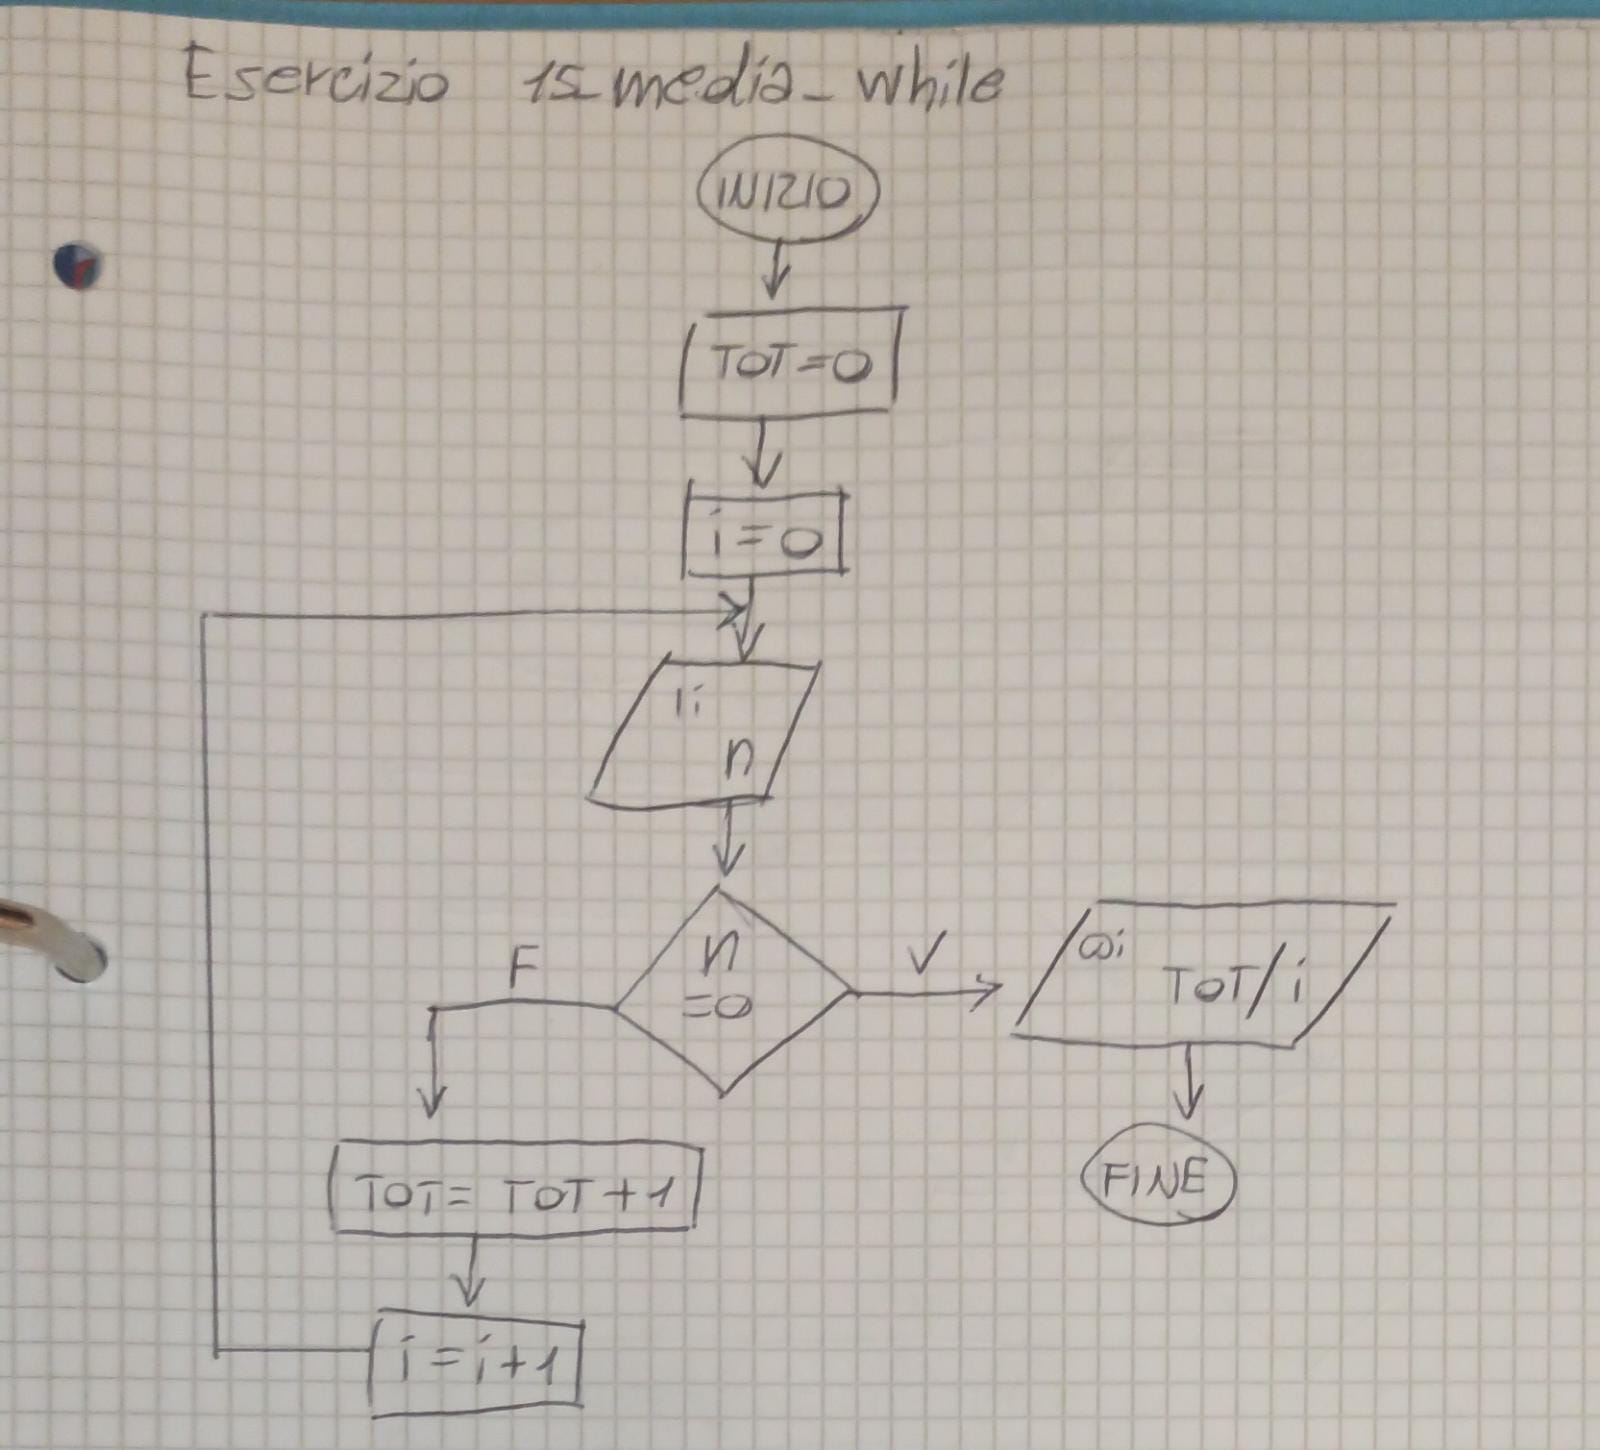 Esercizio 15_media_while
INIZIO
TOT=0
i=0
I:
n
n
=0
F
V
O:
TOT/i
FINE
TOT= TOT+1
i=i+1